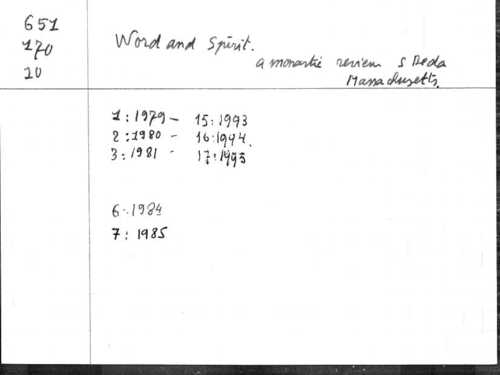 651
170
20
Word and Spirit.
a monastic review S Beda
Massachusetts.
1:1979 - 15:1993
2:1980 - 16:1994.
3:1981 - 17:1995
6:.1984
7: 1985